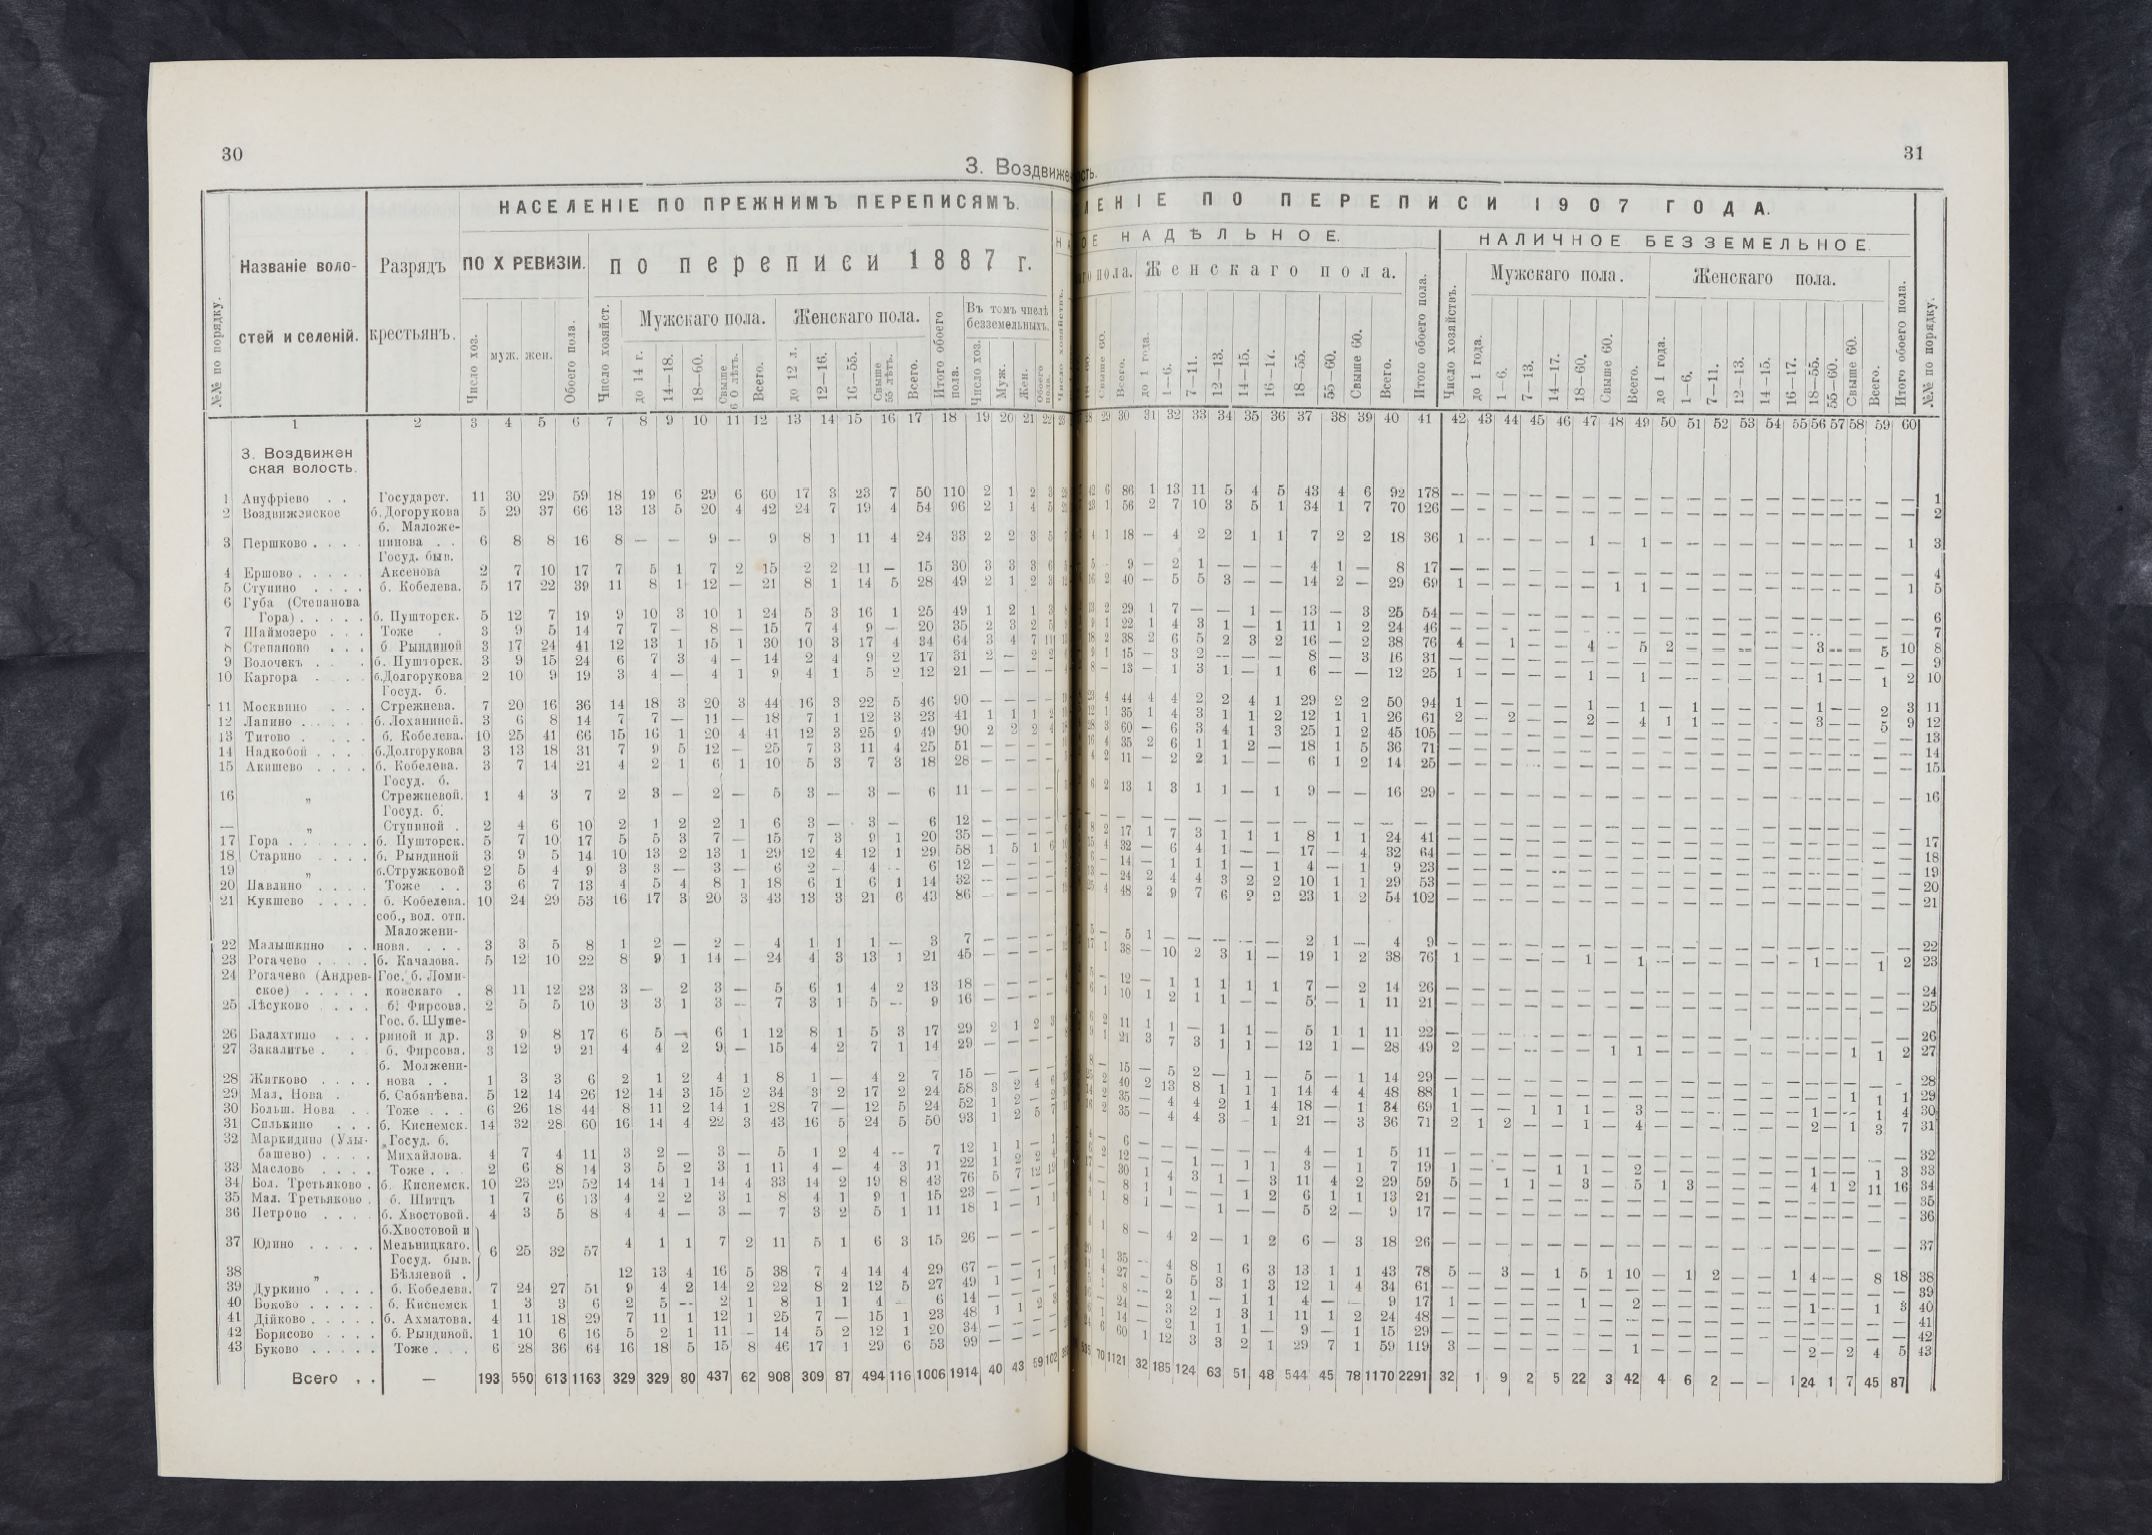 30
3. Воздвиже
НАСЕЛЕНІЕ ПО ПРЕЖНИМЪ ПЕРЕПИСЯМЪ.
№№ по порядку.
Названіе воло-
стей и селеній.
Разрядъ
крестьянъ.
ПО X РЕВИЗІИ.
по переписи 1887 г.
Число хоз.
муж. жен.
Обоего пола.
Число хозяйст.
Мужскаго пола.
Женскаго пола.
Итого обоего пола.
Въ томъ числѣ
безземельныхъ.
до 14 г. 14—18. 18—60. Свыше 60 лѣтъ. Всего.
до 12 л. 12—16. 16—55. Свыше 55 лѣтъ. Всего.
Число хоз. Муж. Жен.
1 2 3 4 5 6 7 8 9 10 11 12 13 14 15 16 17 18 19 20 21 22
3. Воздвижен
ская волость.
1 Ануфріево . . Государст. 11 30 29 59 18 19 6 29 6 60 17 3 23 7 50 110 2 1 2 3
2 Воздвиженское б.Догорукова 5 29 37 66 13 13 5 20 4 42 24 7 19 4 54 96 2 1 4 5
б. Маложе-
3 Першково . . . . нинова . . 6 8 8 16 8 — — 9 — 9 8 1 11 4 24 33 2 2 3 5
Госуд. быв.
4 Ершово . . . . . Аксенова 2 7 10 17 7 5 1 7 2 15 2 2 11 — 15 30 3 3 3 6
5 Ступино . . . . б. Кобелева. 5 17 22 39 11 8 1 12 — 21 8 1 14 5 28 49 2 1 2 3
6 Губа (Степанова
Гора) . . . . . б. Пушторск. 5 12 7 19 9 10 3 10 1 24 5 3 16 1 25 49 1 2 1 3
7 Шаймозеро . . . Тоже . 3 9 5 14 7 7 — 8 — 15 7 4 9 — 20 35 2 3 2 5
8 Степаново . . . б Рындиной 3 17 24 41 12 13 1 15 1 30 10 3 17 4 34 64 3 4 7 11
9 Волочекъ . . . б. Пушторск. 3 9 15 24 6 7 3 4 — 14 2 4 9 2 17 31 2 — 2 2
10 Каргора . . . . б.Долгорукова 2 10 9 19 3 4 — 4 1 9 4 1 5 2 12 21 — — — —
Госуд. б.
11 Москвино . . . Стрежнева. 7 20 16 36 14 18 3 20 3 44 16 3 22 5 46 90 — — — —
12 Лапино . . . . . б. Лоханиной. 3 6 8 14 7 7 — 11 — 18 7 1 12 3 23 41 1 1 1 2
13 Титово . . . . . б. Кобелева. 10 25 41 66 15 16 1 20 4 41 12 3 25 9 49 90 2 2 2 4
14 Надкобой . . . . б.Долгорукова 3 13 18 31 7 9 5 12 — 25 7 3 11 4 25 51 — — — —
15 Акишево . . . . б. Кобелева. 3 7 14 21 4 2 1 6 1 10 5 3 7 3 18 28 — — — —
Госуд. б.
16 „ Стрежневой. 1 4 3 7 2 3 — 2 — 5 3 — 3 — 6 11 — — — —
Госуд. б.
— „ Ступиной . 2 4 6 10 2 1 2 2 1 6 3 — 3 — 6 12 — — — —
17 Гора . . . . . . б. Пушторск. 5 7 10 17 5 5 3 7 — 15 7 3 9 1 20 35 — — — —
18 Старино . . . . б. Рындиной 3 9 5 14 10 13 2 13 1 29 12 4 12 1 29 58 1 5 1 6
19 „ б.Стружковой 2 5 4 9 3 3 — 3 — 6 2 — 4 — 6 12 — — — —
20 Павлино . . . . Тоже . . 3 6 7 13 4 5 4 8 1 18 6 1 6 1 14 32 — — — —
21 Кукшево . . . . б. Кобелева. 10 24 29 53 16 17 3 20 3 43 13 3 21 6 43 86 — — — —
соб., вол. отп.
Маложени-
22 Малышкино . . нова. . . . 3 3 5 8 1 2 — 2 — 4 1 1 1 — 3 7 — — — —
23 Рогачево . . . . б. Качалова. 5 12 10 22 8 9 1 14 — 24 4 3 13 1 21 45 — — — —
24 Рогачево (Андрев- Гос. б. Ломи-
ское) . . . . . ковскаго . . 8 11 12 23 3 — 2 3 — 5 6 1 4 2 13 18 — — — —
25 Лѣсуково . . . . б. Фирсова. 2 5 5 10 3 3 1 3 — 7 3 1 5 — 9 16 — — — —
Гос. б. Шуше-
26 Балахтино . . . риной и др. 3 9 8 17 6 5 — 6 1 12 8 1 5 3 17 29 2 1 2 3
27 Закалитье . . . б. Фирсова. 3 12 9 21 4 4 2 9 — 15 4 2 7 1 14 29 — — — —
б. Молжени-
28 Житково . . . . нова . . 1 3 3 6 2 1 2 4 1 8 1 — 4 2 7 15 — — — —
29 Мал. Нова . б. Сабанѣева. 5 12 14 26 12 14 3 15 2 34 3 2 17 2 24 58 3 2 4 6
30 Больш. Нова . . Тоже . . . 6 26 18 44 8 11 2 14 1 28 7 — 12 5 24 52 1 2 — 2
31 Силькино . . . б. Киснемск. 14 32 28 60 16 14 4 22 3 43 16 5 24 5 50 93 1 2 5 7
32 Маркидино (Улы- Госуд. б.
башево) . . . . Михайлова. 4 7 4 11 3 2 — 3 — 5 1 2 4 — 7 12 1 1 — 1
33 Маслово . . . . Тоже . . . 2 6 8 14 3 5 2 3 1 11 4 — 4 3 11 22 1 2 2 4
34 Бол. Третьяково . б. Киснемск. 10 23 29 52 14 14 1 14 4 33 14 2 19 8 43 76 5 7 12 19
35 Мал. Третьяково . б. Шитцъ 1 7 6 13 4 2 2 3 1 8 4 1 9 1 15 23 — — — —
36 Петрово . . . . б. Хвостовой. 4 3 5 8 4 4 — 3 — 7 3 2 5 1 11 18 1 — 1 1
б.Хвостовой и
37 Юдино . . . . . Мельницкаго. 6 25 32 57 4 1 1 7 2 11 5 1 6 3 15 26 — — — —
Госуд. быв.
38 „ Бѣляевой . 12 13 4 16 5 38 7 4 14 4 29 67 — — — —
39 Дуркино . . . . б. Кобелева. 7 24 27 51 9 4 2 14 2 22 8 2 12 5 27 49 1 — 1 1
40 Боково . . . . . б. Киснемск 1 3 3 6 2 5 — 2 1 8 1 1 4 — 6 14 — — — —
41 Дійково . . . . . б. Ахматова. 4 11 18 29 7 11 1 12 1 25 7 — 15 1 23 48 1 1 2 3
42 Борисово . . . . б. Рындиной. 1 10 6 16 5 2 1 11 — 14 5 2 12 1 20 34 — — — —
43 Буково . . . . . Тоже . . . 6 28 36 64 16 18 5 15 8 46 17 1 29 6 53 99 — — — —
Всего . . — 193 550 613 1163 329 329 80 437 62 908 309 87 494 116 1006 1914 40 43 59 102
31
сть.
ЛЕНІЕ ПО ПЕРЕПИСИ 1907 ГОДА.
ОЕ НАДѢЛЬНОЕ.
НАЛИЧНОЕ БЕЗЗЕМЕЛЬНОЕ.
пола. Женскаго пола.
Итого обоего пола.
Число хозяйствъ.
Мужскаго пола.
Женскаго пола.
Итого обоего пола.
№№ по порядку.
Свыше 60. Всего.
до 1 года. 1—6. 7—11. 12—13. 14—15. 16—17. 18—55. 55—60. Свыше 60. Всего.
до 1 года. 1—6. 7—13. 14—17. 18—60. Свыше 60. Всего.
до 1 года. 1—6. 7—11. 12—13. 14—15. 16—17. 18—55. 55—60. Свыше 60. Всего.
29 30 31 32 33 34 35 36 37 38 39 40 41 42 43 44 45 46 47 48 49 50 51 52 53 54 55 56 57 58 59 60
42 6 86 1 13 11 5 4 5 43 4 6 92 178 — — — — — — — — — — — — — — — — — — — 1
1 56 2 7 10 3 5 1 34 1 7 70 126 — — — — — — — — — — — — — — — — — — — 2
4 1 18 — 4 2 2 1 1 7 2 2 18 36 1 — — — — 1 — 1 — — — — — — — — — — 1 3
5 — 9 — 2 1 — — — 4 1 — 8 17 — — — — — — — — — — — — — — — — — — — 4
16 2 40 — 5 5 3 — — 14 2 — 29 69 1 — — — — — 1 1 — — — — — — — — — — 1 5
13 2 29 1 7 — — 1 — 13 — 3 25 54 — — — — — — — — — — — — — — — — — — — 6
9 1 22 1 4 3 1 — 1 11 1 2 24 46 — — — — — — — — — — — — — — — — — — — 7
18 2 38 2 6 5 2 3 2 16 — 2 38 76 4 — 1 — — 4 — 5 2 — — — — — 3 — — 5 10 8
9 1 15 — 3 2 — — — 8 — 3 16 31 — — — — — — — — — — — — — — — — — — — 9
8 — 13 — 1 3 1 — 1 6 — — 12 25 1 — — — — 1 — 1 — — — — — — 1 — — 1 2 10
23 4 44 4 4 2 2 4 1 29 2 2 50 94 1 — — — — 1 — 1 — 1 — — — — 1 — — 2 3 11
12 1 35 1 4 3 1 1 2 12 1 1 26 61 2 — 2 — — 2 — 4 1 1 — — — — 3 — — 5 9 12
28 3 60 — 6 3 4 1 3 25 1 2 45 105 — — — — — — — — — — — — — — — — — — — 13
16 4 35 2 6 1 1 2 — 18 1 5 36 71 — — — — — — — — — — — — — — — — — — — 14
4 2 11 — 2 2 1 — — 6 1 2 14 25 — — — — — — — — — — — — — — — — — — — 15
6 2 13 1 3 1 1 — 1 9 — — 16 29 — — — — — — — — — — — — — — — — — — — 16
— — — — — — — — — — — — — — — — — — — — — — — — — — — — — — — —
8 2 17 1 7 3 1 1 1 8 1 1 24 41 — — — — — — — — — — — — — — — — — — — 17
15 4 32 — 6 4 1 — — 17 — 4 32 64 — — — — — — — — — — — — — — — — — — — 18
— 14 — 1 1 1 — 1 4 — 1 9 23 — — — — — — — — — — — — — — — — — — — 19
— 24 2 4 4 3 2 2 10 1 1 29 53 — — — — — — — — — — — — — — — — — — — 20
25 4 48 2 9 7 6 2 2 23 1 2 54 102 — — — — — — — — — — — — — — — — — — — 21
5 — 5 1 — — — — — 2 1 — 4 9 — — — — — — — — — — — — — — — — — — — 22
17 1 38 — 10 2 3 1 — 19 1 2 38 76 1 — — — — 1 — 1 — — — — — — 1 — — 1 2 23
— 12 — 1 1 1 1 1 7 — 2 14 26 — — — — — — — — — — — — — — — — — — — 24
6 1 10 1 2 1 1 — — 5 — 1 11 21 — — — — — — — — — — — — — — — — — — — 25
2 11 1 1 — 1 1 — 5 1 1 11 22 — — — — — — — — — — — — — — — — — — — 26
1 21 3 7 3 1 1 — 12 1 — 28 49 2 — — — — — 1 1 — — — — — — — — 1 1 2 27
— 15 — 5 2 — 1 — 5 — 1 14 29 — — — — — — — — — — — — — — — — — — — 28
2 40 2 13 8 1 1 1 14 4 4 48 88 1 — — — — — — — — — — — — — — — 1 1 1 29
2 35 — 4 4 2 1 4 18 — 1 34 69 1 — — 1 1 1 — 3 — — — — — — 1 — — 1 4 30
2 35 — 4 4 3 — 1 21 — 3 36 71 2 1 2 — — 1 — 4 — — — — — — 2 — 1 3 7 31
— 6 — — — — — — 4 — 1 5 11 — — — — — — — — — — — — — — — — — — — 32
2 12 — — 1 — 1 1 3 — 1 7 19 1 — — — 1 1 — 2 — — — — — — 1 — — 1 3 33
— 30 1 4 3 1 — 3 11 4 2 29 59 5 — 1 1 — 3 — 5 1 3 — — — — 4 1 2 11 16 34
8 1 1 — — 1 2 6 1 1 13 21 — — — — — — — — — — — — — — — — — — — 35
1 8 — — — 1 — — 5 2 — 9 17 — — — — — — — — — — — — — — — — — — — 36
1 8 — 4 2 — 1 2 6 — 3 18 26 — — — — — — — — — — — — — — — — — — — 37
1 35 — 4 8 1 6 3 13 1 1 43 78 5 — 3 — 1 5 1 10 — 1 2 — — 1 4 — — 8 18 38
4 27 — 5 5 3 1 3 12 1 4 34 61 — — — — — — — — — — — — — — — — — — — 39
— 8 — 2 1 — 1 1 4 — — 9 17 1 — — — — 1 — 2 — — — — — — 1 — — 1 3 40
— 24 — 3 2 1 3 1 11 1 2 24 48 — — — — — — — — — — — — — — — — — — — 41
1 14 — 2 1 1 1 — 9 — 1 15 29 — — — — — — — — — — — — — — — — — — — 42
6 60 1 12 3 3 2 1 29 7 1 59 119 3 — — — — — — 1 — — — — — — 2 — 2 4 5 43
70 1121 32 185 124 63 51 48 544 45 78 1170 2291 32 1 9 2 5 22 3 42 4 6 2 — — 1 24 1 7 45 87